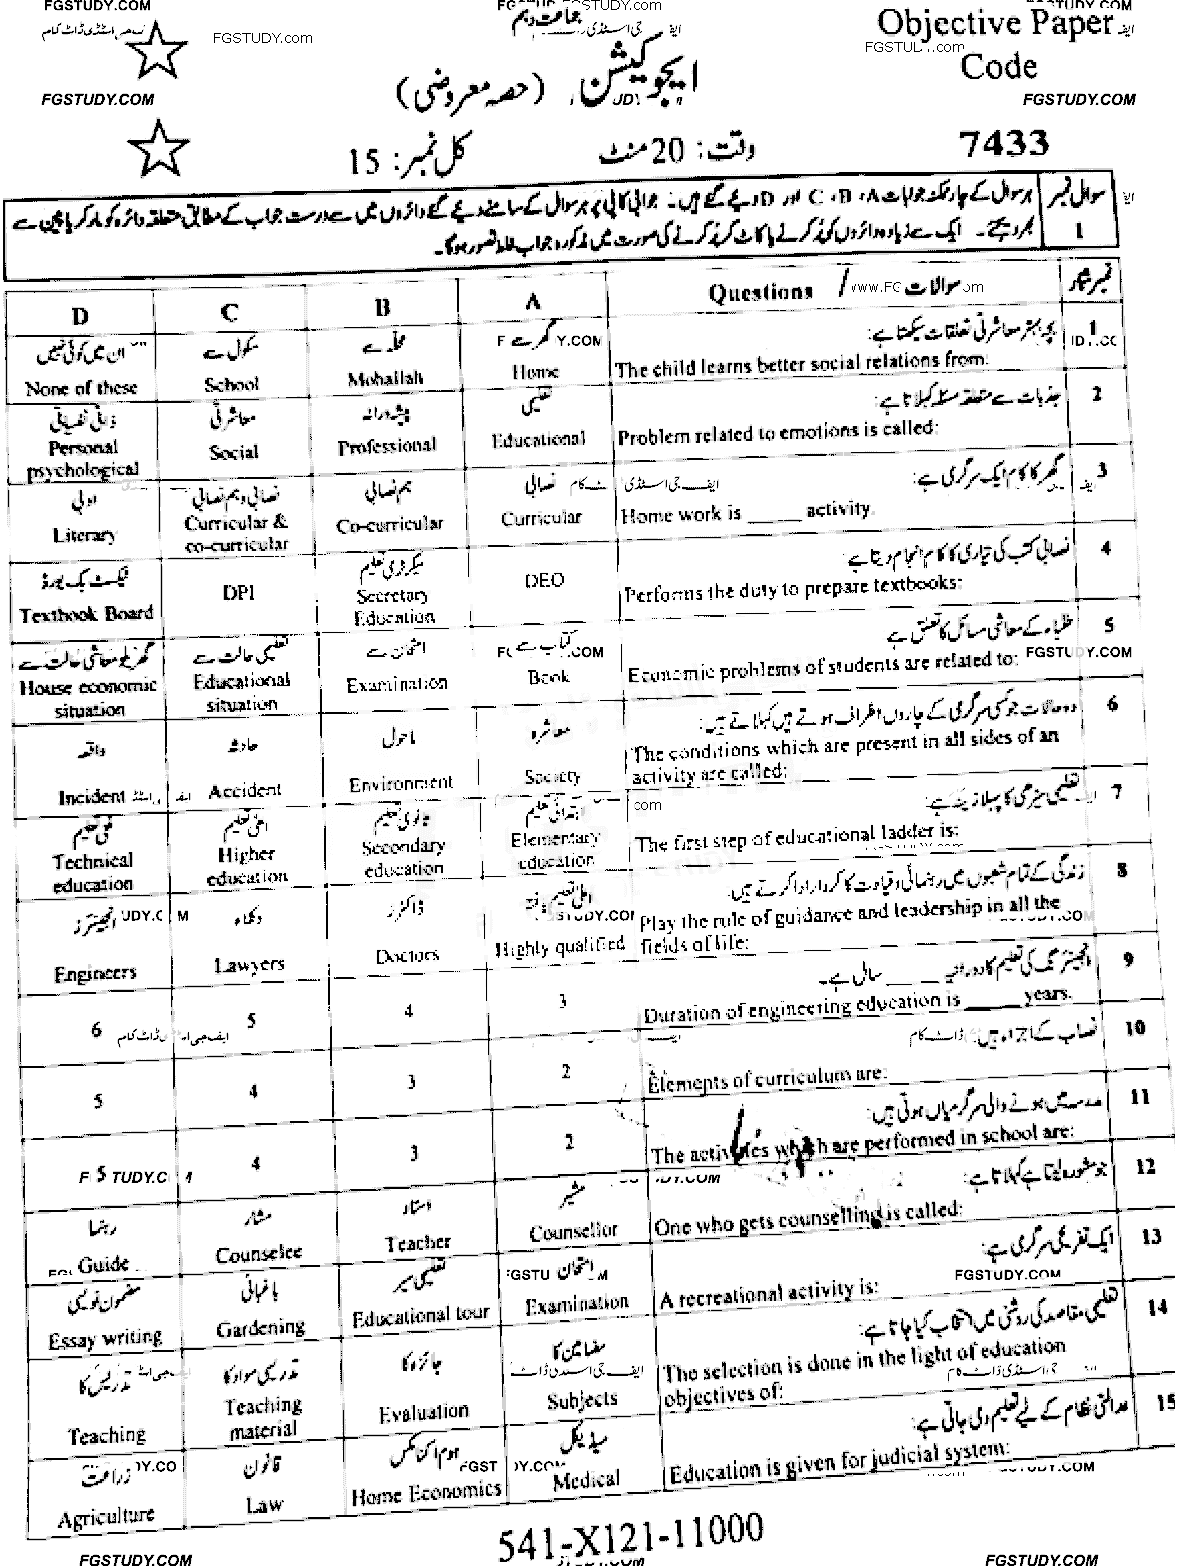 FGSTUDY.COM
FGSTUDY.com
FGSTUDY.COM
جماعت دہم
ایجوکیشن (حصہ معروضی)
وقت: 20 منٹ
کل نمبر: 15
Objective Paper
Code
7433
سوال نمبر 1
ہر سوال کے چار ممکنہ جوابات A، B، C اور D دیئے گئے ہیں۔ جوابی کاپی پر ہر سوال کے سامنے دیئے گئے دائروں میں سے درست جواب کے مطابق متعلقہ دائرہ کو مارکر یا پین سے
بھر دیجئے۔ ایک سے زیادہ دائروں کو پُر کرنے یا کاٹ کر پُر کرنے کی صورت میں مذکورہ جواب غلط تصور ہوگا۔
نمبر شمار
Questions / سوالات
A
B
C
D
1
بچہ بہتر معاشرتی تعلقات سیکھتا ہے:
The child learns better social relations from:
گھر سے
Home
محلّہ سے
Mohallah
سکول سے
School
ان میں کوئی نہیں
None of these
2
جذبات سے متعلقہ مسئلہ کہلاتا ہے:
Problem related to emotions is called:
تعلیمی
Educational
پیشہ ورانہ
Professional
معاشرتی
Social
ذاتی نفسیاتی
Personal
psychological
3
گھر کا کام ایک سرگرمی ہے:
Home work is _____ activity.
نصابی
Curricular
ہم نصابی
Co-curricular
نصابی و ہم نصابی
Curricular &
co-curricular
ادبی
Literary
4
نصابی کتب کی تیاری کا کام انجام دیتا ہے:
Performs the duty to prepare textbooks:
DEO
سیکرٹری تعلیم
Secretary
Education
DPI
ٹیکسٹ بک بورڈ
Textbook Board
5
طلباء کے معاشی مسائل کا تعلق ہے
Economic problems of students are related to:
FGSTUDY.COM
کتاب سے
Book
امتحان سے
Examination
تعلیمی حالت سے
Educational
situation
گھریلو معاشی حالت سے
House economic
situation
6
وہ حالات جو کسی سرگرمی کے چاروں اطراف ہوتے ہیں کہلاتے ہیں:
The conditions which are present in all sides of an
activity are called:
معاشرہ
Society
ماحول
Environment
حادثہ
Accident
واقعہ
Incident
7
تعلیمی سیڑھی کا پہلا زینہ ہے:
The first step of educational ladder is:
ابتدائی تعلیم
Elementary
education
ثانوی تعلیم
Secondary
education
اعلیٰ تعلیم
Higher
education
فنی تعلیم
Technical
education
8
زندگی کے تمام شعبوں میں رہنمائی و قیادت کا کردار ادا کرتے ہیں:
Play the rule of guidance and leadership in all the
fields of life:
اعلیٰ تعلیم یافتہ
Highly qualified
ڈاکٹرز
Doctors
وکلاء
Lawyers
انجینئرز
Engineers
9
انجینئرنگ کی تعلیم کا دورانیہ _____ سال ہے۔
Duration of engineering education is _____ years.
3
4
5
6
10
نصاب کے اجزاء ہیں:
Elements of curriculum are:
2
3
4
5
11
مدرسہ میں ہونے والی سرگرمیاں ہوتی ہیں:
The activities which are performed in school are:
2
3
4
5
12
جو مشورہ لیتا ہے کہلاتا ہے:
One who gets counselling is called:
مشیر
Counsellor
استاد
Teacher
مشار
Counselee
رہنما
Guide
13
ایک تفریحی سرگرمی ہے:
A recreational activity is:
FGSTUDY.COM
امتحان
Examination
تعلیمی سیر
Educational tour
باغبانی
Gardening
مضمون نویسی
Essay writing
14
تعلیمی مقاصد کی روشنی میں انتخاب کیا جاتا ہے:
The selection is done in the light of education
objectives of:
مضامین کا
Subjects
جائزہ کا
Evaluation
تدریسی مواد کا
Teaching
material
تدریس کا
Teaching
15
عدالتی نظام کے لیے تعلیم دی جاتی ہے:
Education is given for judicial system:
میڈیکل
Medical
ہوم اکنامکس
Home Economics
قانون
Law
زراعت
Agriculture
541-X121-11000
FGSTUDY.COM
FGSTUDY.COM